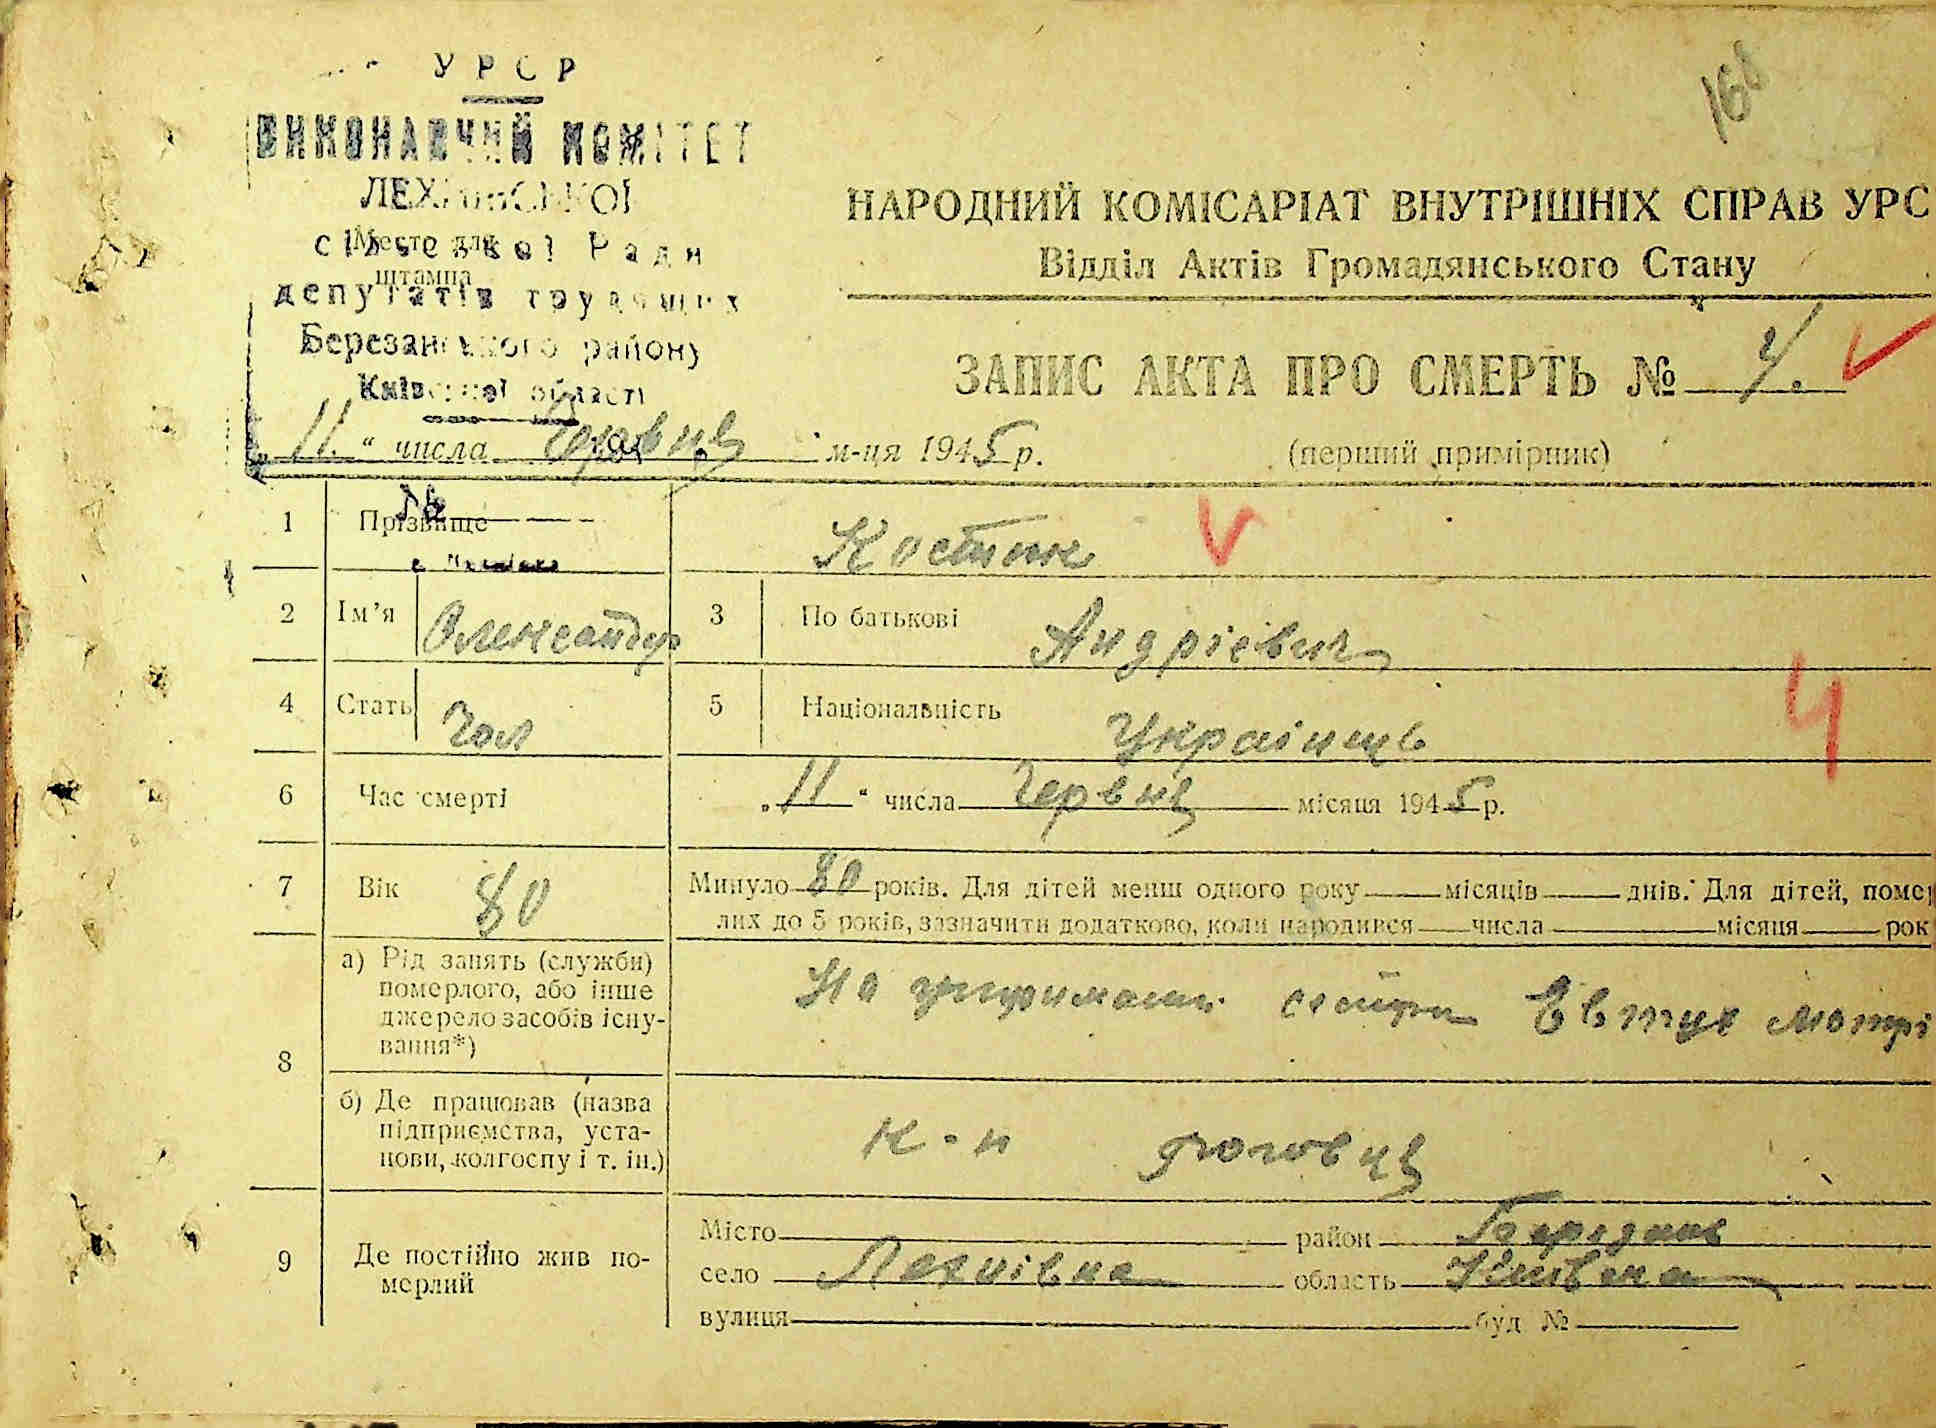 168
УРСР
ВИКОНАВЧИЙ КОМІТЕТ
ЛЕХНІВСЬКОЇ
сільської Ради
Место для
штампа
депутатів трудящих
Березанського району
Київської області
НАРОДНИЙ КОМІСАРІАТ ВНУТРІШНІХ СПРАВ УРС
Відділ Актів Громадянського Стану
ЗАПИС АКТА ПРО СМЕРТЬ № 4.
„11“ числа Червня м-ця 1945 р.
(перший примірник)
№
1 Прізвище Костюк
2 Ім’я Олександр 3 По батькові Андрієвич
4 Стать Чол 5 Національність Українець
Ч
6 Час смерті „11“ числа Червня місяця 1945 р.
7 Вік 80 Минуло 80 років. Для дітей менш одного року місяців днів. Для дітей, помер
лих до 5 років, зазначити додатково, коли народився числа місяця рок
8 а) Рід занять (службы) померлого, або інше джерело засобів існу-вання*) На утриманні сестри Евтух Мотрі
б) Де працював (назва підприємства, уста-нови, колгоспу і т. ін.) к-п
9 Де постійно жив по-мерлий
Місто район Березань
село Лехнівка область Київська
вулиця буд №